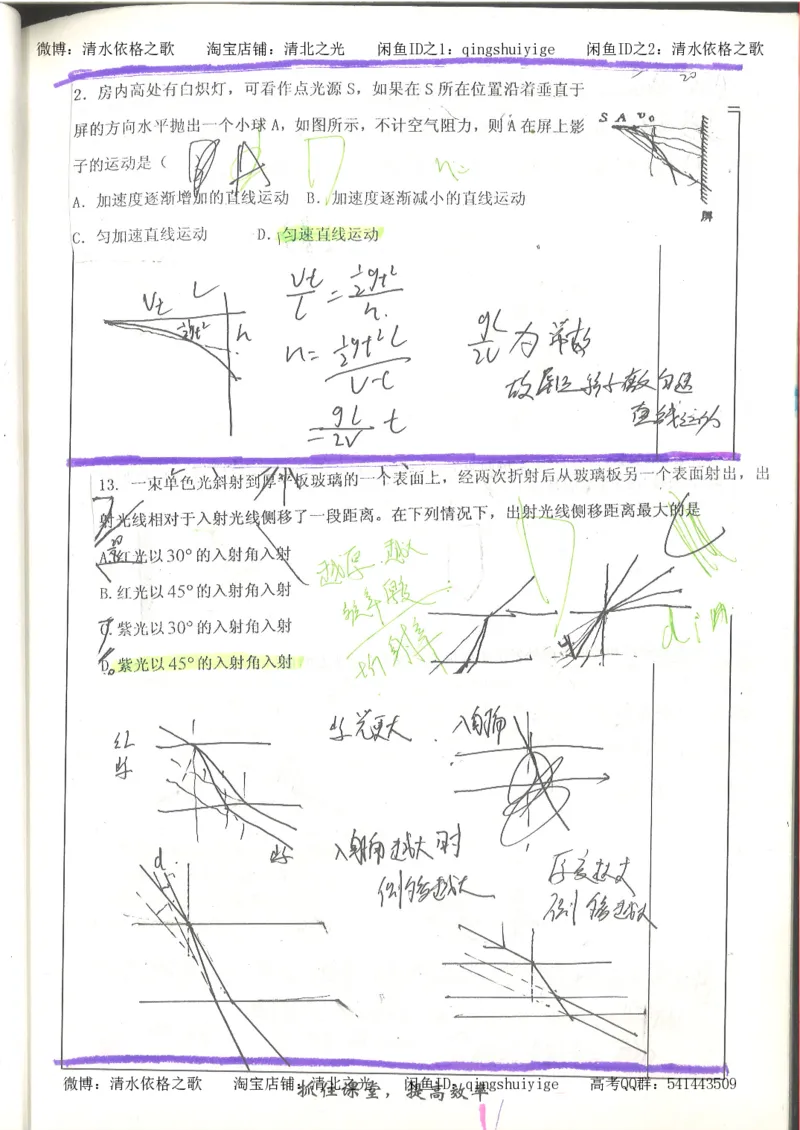 微博：清水依格之歌 淘宝店铺：清北之光 闲鱼ID之1：qingshuiyige 闲鱼ID之2：清水依格之歌
20
2．房内高处有白炽灯，可看作点光源 S，如果在 S 所在位置沿着垂直于
屏的方向水平抛出一个小球 A，如图所示，不计空气阻力，则 A 在屏上影
子的运动是（
S A v₀
屏
A．加速度逐渐增加的直线运动 B．加速度逐渐减小的直线运动
C．匀加速直线运动 D．匀速直线运动
Vt L
½gt² h
Vt/L = ½gt²/h.
h = ½gt²L/Vt
= gL/2V t
gL/2V 为常数
故 影子做匀速
直线运动
13. 一束单色光斜射到厚平板玻璃的一个表面上，经两次折射后从玻璃板另一个表面射出，出
射光线相对于入射光线侧移了一段距离。在下列情况下，出射光线侧移距离最大的是
A.红光以30°的入射角入射
B.红光以45°的入射角入射
C.紫光以30°的入射角入射
D.紫光以45°的入射角入射
越厚 越大
折射率
红
紫
紫光更大 入射角
紫
d
入射角越大时
侧移越大
厚度越大
侧移越大
微博：清水依格之歌 淘宝店铺：清北之光 闲鱼ID：qingshuiyige 高考QQ群：541443509
抓住课堂，提高效率